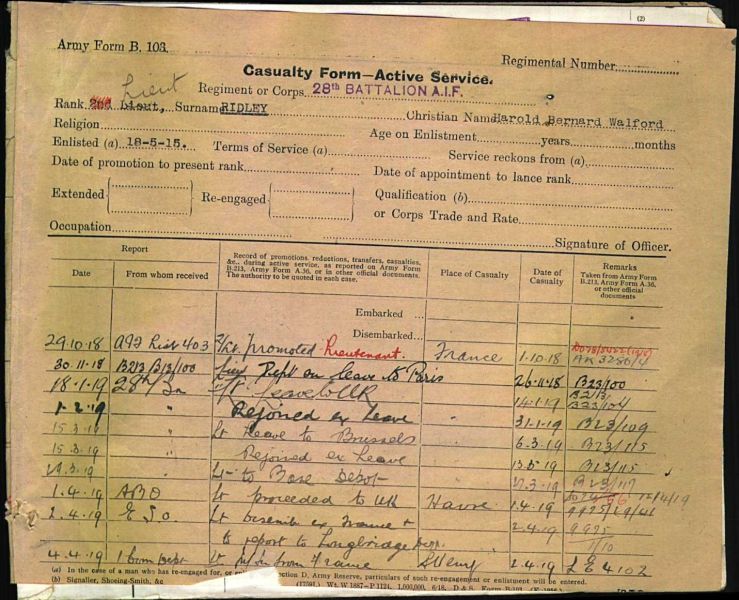 (2)
Army Form B. 103.
Regimental Number
Casualty Form—Active Service.
Lieut
Regiment or Corps 28th BATTALION A.I.F.
Rank 2nd Lieut, Surname RIDLEY Christian Name Harold Bernard Walford
Religion Age on Enlistment years months
Enlisted (a) 18-5-15. Terms of Service (a) Service reckons from (a)
Date of promotion to present rank Date of appointment to lance rank
Extended Re-engaged Qualification (b)
or Corps Trade and Rate
Occupation Signature of Officer.
Report
Date From whom received
Record of promotions, reductions, transfers, casualties, &c., during active service, as reported on Army Form B.213, Army Form A.36, or in other official documents. The authority to be quoted in each case.
Place of Casualty
Date of Casualty
Remarks
Taken from Army Form B.213, Army Form A.36, or other official documents
Embarked
Disembarked
29.10.18 AIF List 403 2/Lt. promoted Lieutenant. France 1.10.18 AK 3280/4
30.11.18 B213 B13/100 Rept on leave to Paris 26.11.18 B23/100
18.1.19 28th Bn Lt. Leave to UK 14.1.19 B213 B23/104
1.2.19 " Rejoined ex Leave " 31.1.19 B23/109
15.3.19 " Lt Leave to Brussels 6.3.19 B23/115
15.3.19 " Rejoined ex Leave 13.3.19 B23/115
29.3.19 " Lt to Base Depot 27.3.19 B23/117
1.4.19 Lt proceeded to UK Havre 1.4.19 12/4/19
2.4.19 E S O. Lt ex France + 2.4.19 9925
to report to Longbridge Dep. 7/10
4.4.19 Lt from France 2.4.19 LE 4102
(a) In the case of a man who has re-engaged for, or Section D, Army Reserve, particulars of such re-engagement or enlistment will be entered.
(b) Signaller, Shoeing-Smith, &c
(17591.) Wt. W 1887—P 1124. 1,000,000. 6/18. D & S. Form B.103